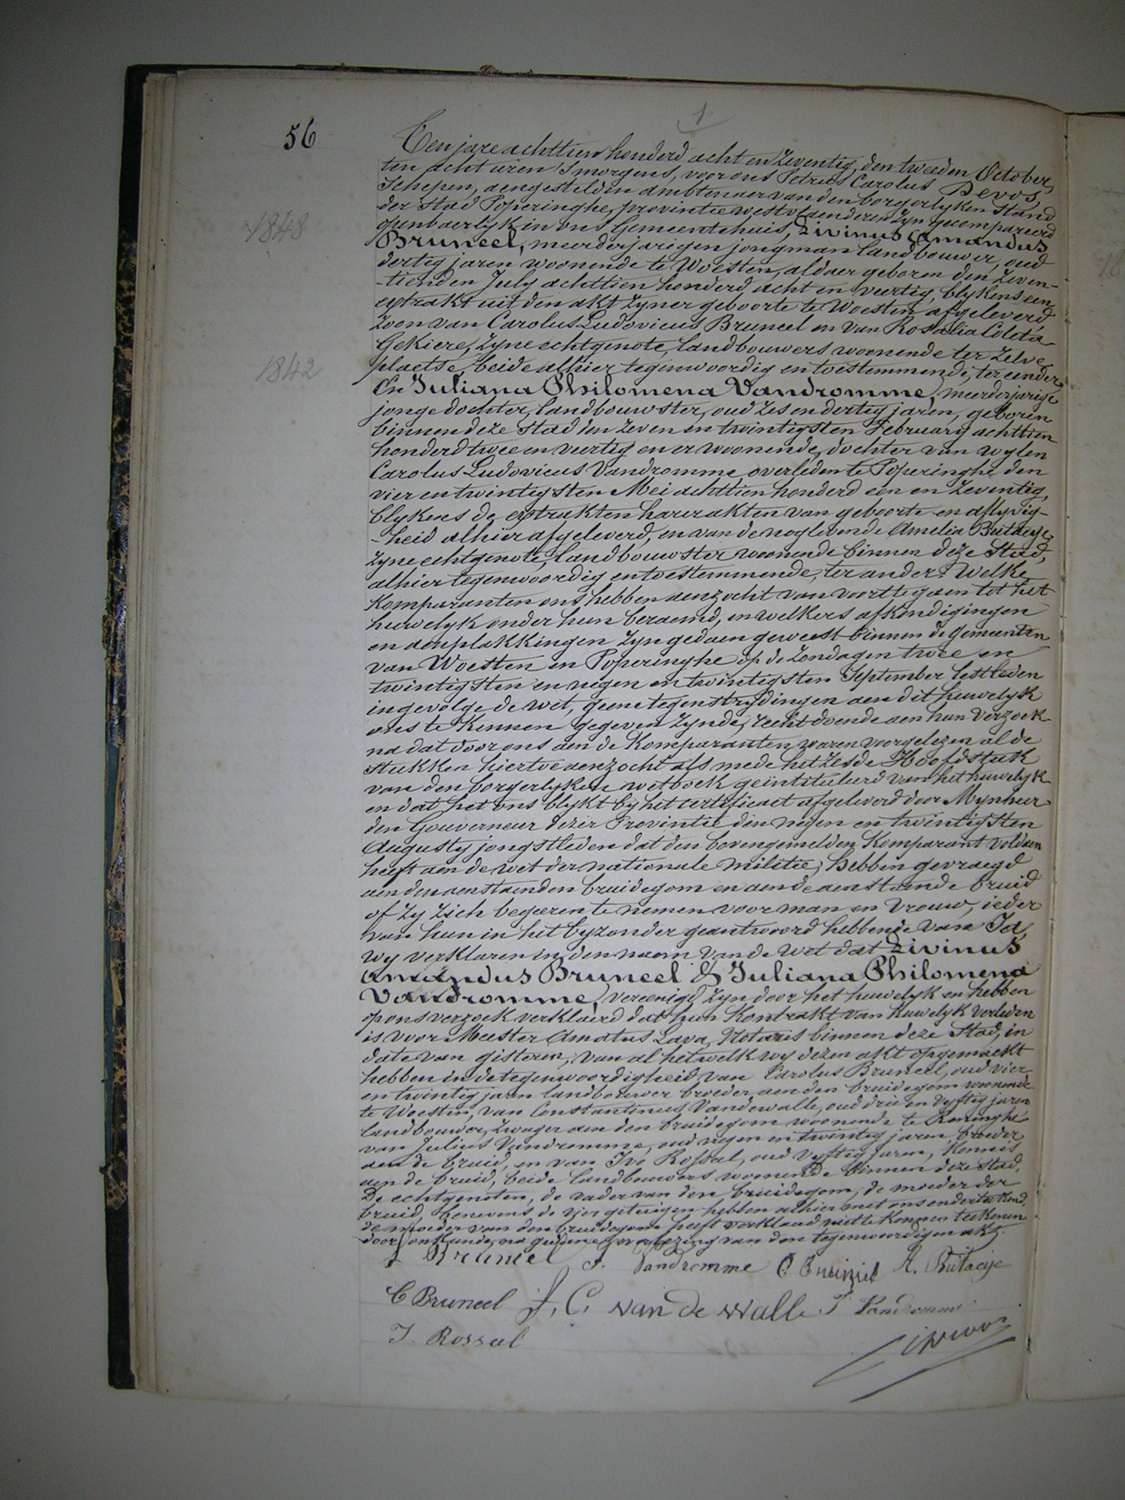 1
56
Ten jare achttien honderd acht en zeventig, den tweeden October,
ten acht uren 's morgens, voor ons Petrus Carolus Devos,
Schepen, aengestelden ambtenaer van den borgerlyken Stand
der Stad Poperinghe, provintie westvlaenderen zyn gecompareerd
openbaerlyk in ons Gemeentehuis, Livinus Amandus
1848
Bruneel, meerderjarigen jongman landbouwer, oud
dertig jaren woonende te Woesten, aldaer geboren den zeven-
-tienden July achttien honderd acht en veertig, blykens een
extrakt uit den akt zyner geboorte te Woesten afgeleverd
zoon van Carolus Ludovicus Bruneel en van Rosalia Coleta
Gekiere, zyne echtgenote, landbouwers woonende ter zelve
plaetse, beide alhier tegenwoordig en toestemmende, ter eender
1842
En Juliana Philomena Vandromme, meerderjarige
jonge dochter, landbouwster, oud zes en dertig jaren, geboren
binnen deze Stad den zeven en twintigsten February achttien
honderd twee en veertig en er woonende, dochter van wylen
Carolus Ludovicus Vandromme, overleden te Poperinghe den
vier en twintigsten Mei achttien honderd een en zeventig,
blykens de extrakten harer akten van geboorte en aflyvig-
-heid alhier afgeleverd, en van de noglevende Amelia Butaeye
zyne echtgenote, landbouwster woonende binnen deze Stad,
alhier tegenwoordig en toestemmende, ter ander: Welke
komparanten ons hebben aenzocht van voorttegaen tot het
huwelyk onder hun beraemd, en welkers afkondigingen
en aenplakkingen zyn gedaen geweest binnen de Gemeenten
van Woesten en Poperinghe op de zondagen twee en
twintigsten en negen en twintigsten September lestleden
ingevolge de wet, geene tegenstrydingen aen dit huwelyk
ons te kennen gegeven zynde, recht doende aen hun verzoek
na dat door ons aen de komparanten waren voorgelezen al de
stukken hiertoe aenzocht als mede het zesde Hoofdstuk
van den borgerlyken wetboek geintituleerd van het huwelyk
en dat het ons blykt by het certificaet afgeleverd door Mynheer
den Gouverneur dezer Provintie den negen en twintigsten
Augusty jongstleden dat den bovengemelden komparant voldaen
heeft aen de wet der nationale militie, hebben gevraegd
aen den aenstaenden bruidegom en aen de aenstaende bruid
of zy zich begeeren te nemen voor man en vrouw, ieder
van hun in het byzonder geantwoord hebbende van Ja,
wy verklaren in den naem van de wet dat Livinus
Amandus Bruneel & Juliana Philomena
Vandromme, vereenigd zyn door het huwelyk en hebben
op ons verzoek verklaerd dat hun kontrakt van huwelyk verleden
is voor Meester Amatus Lava, Notaris binnen deze Stad, in
date van gisteren; van al hetwelk wy dezen akt opgemaekt
hebben in de tegenwoordigheid van Carolus Bruneel, oud vier
en twintig jaren landbouwer broeder aen den bruidegom woonende
te Woesten, van Constantinus Vandewalle, oud drie en vyftig jaren
landbouwer, zwager aen den bruidegom woonende te Reninghe
van Julius Vandromme, oud negen en twintig jaren, broeder
aen de bruid, en van Ivo Rossel, oud vyftig jaren, kennis
aen de bruid, beide landbouwers woonende binnen deze Stad.
De echtgenoten, de vader van den bruidegom, de moeder der
bruid, benevens de vier getuigen hebben alhier met ons onderteekend,
de moeder van den bruidegom heeft verklaerd niet te konnen teekenen
door onkunde, na gedane voorlezing van den tegenwoordigen akt.
L Bruneel J. Vandromme C Bruneel A. Butaeye
C Bruneel J. C. van de walle J Vandromme
J. Rossel